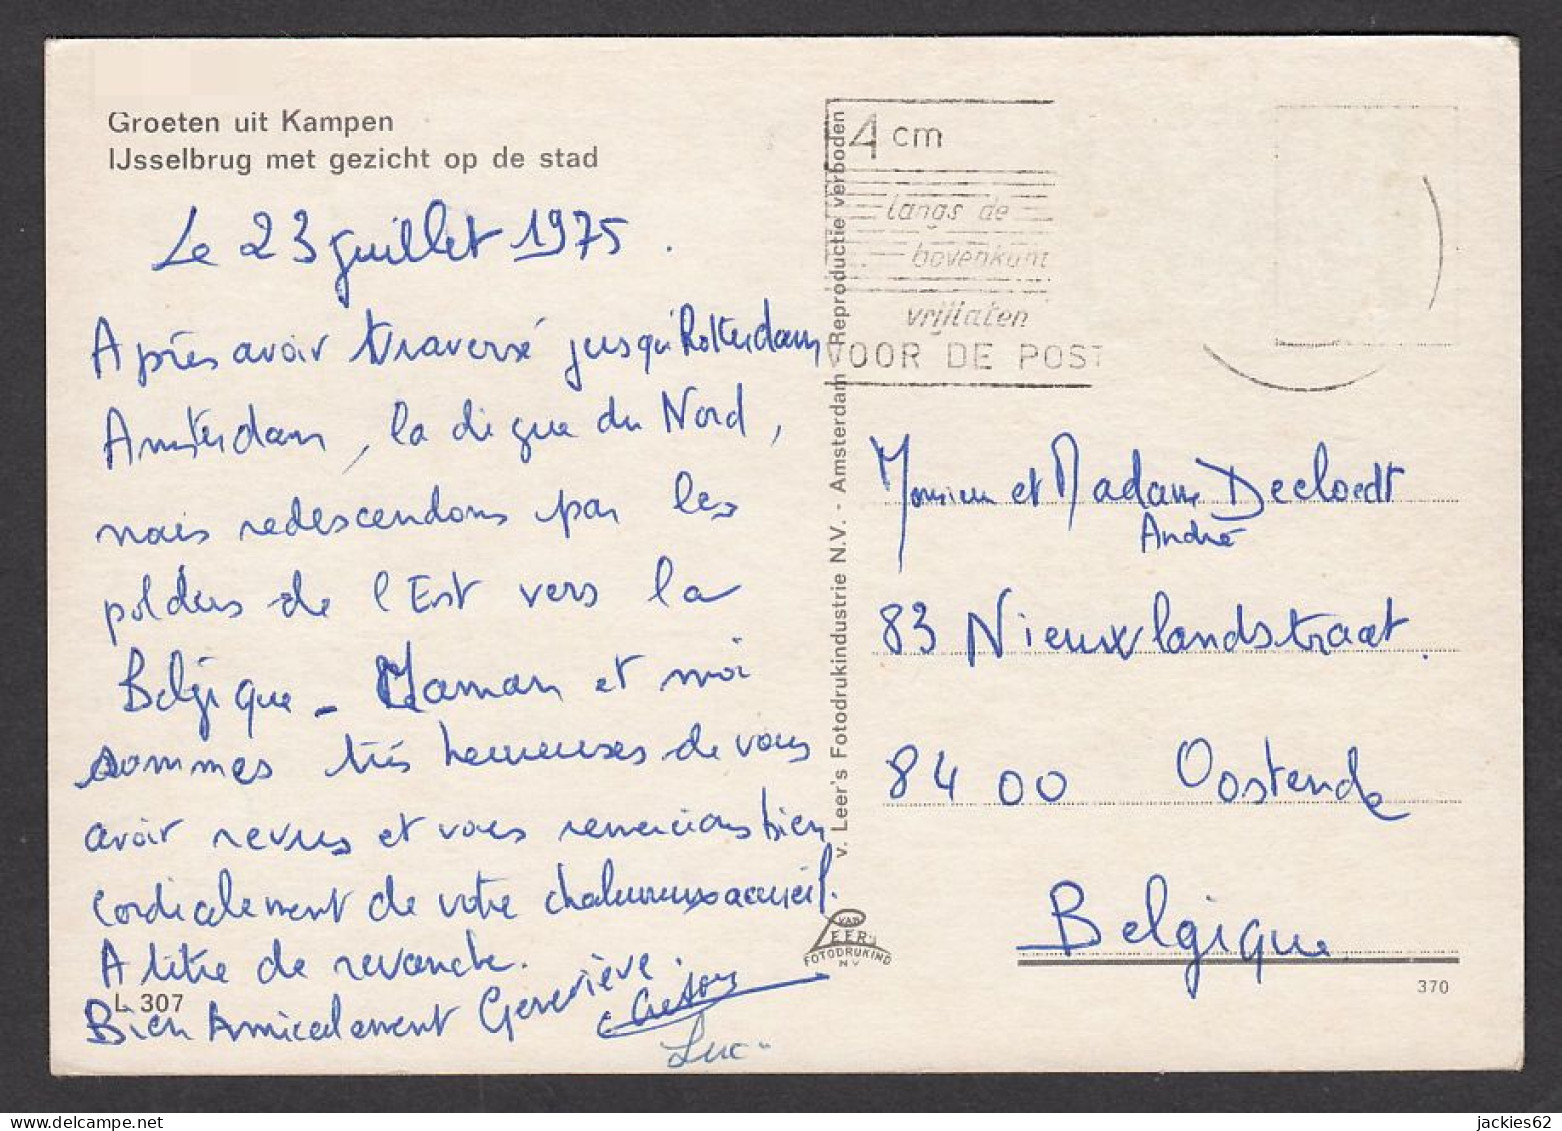 Groeten uit Kampen
IJsselbrug met gezicht op de stad
Le 23 juillet 1975.
Après avoir traversé jusqu'Rotterdam
Amsterdam, la digue du Nord,
nous redescendons par les
polders de l'Est vers la
Belgique - Maman et moi
sommes très heureuses de vous
avoir revus et vous remercions bien
cordialement de votre chaleureux accueil.
A titre de revanche.
L 307
Bien Amicalement Geneviève
Luc
v. Leer's Fotodrukindustrie N.V. - Amsterdam Reproductie verboden
VAN
LEER'S
FOTODRUKIND
N V
4 cm
langs de
bovenkant
vrijlaten
VOOR DE POST
Monsieur et Madame Decloedt
André
83 Nieuwlandstraat.
8400 Oostende
Belgique
370
delcampe.net
jackies62